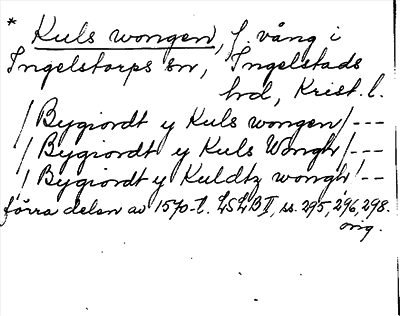 * Kuls wongen, f. vång i
Ingelstorps sn, Ingelstads
hrd, Krist. l.
/ Bygiordt y Kuls wongen /---
/ Bygiordt y Kuls Wongh /---
/ Bygiordt y Kuldtz wongh /--
förra delen av 1570-t. LSLB II, ss. 295, 296, 298.
orig.